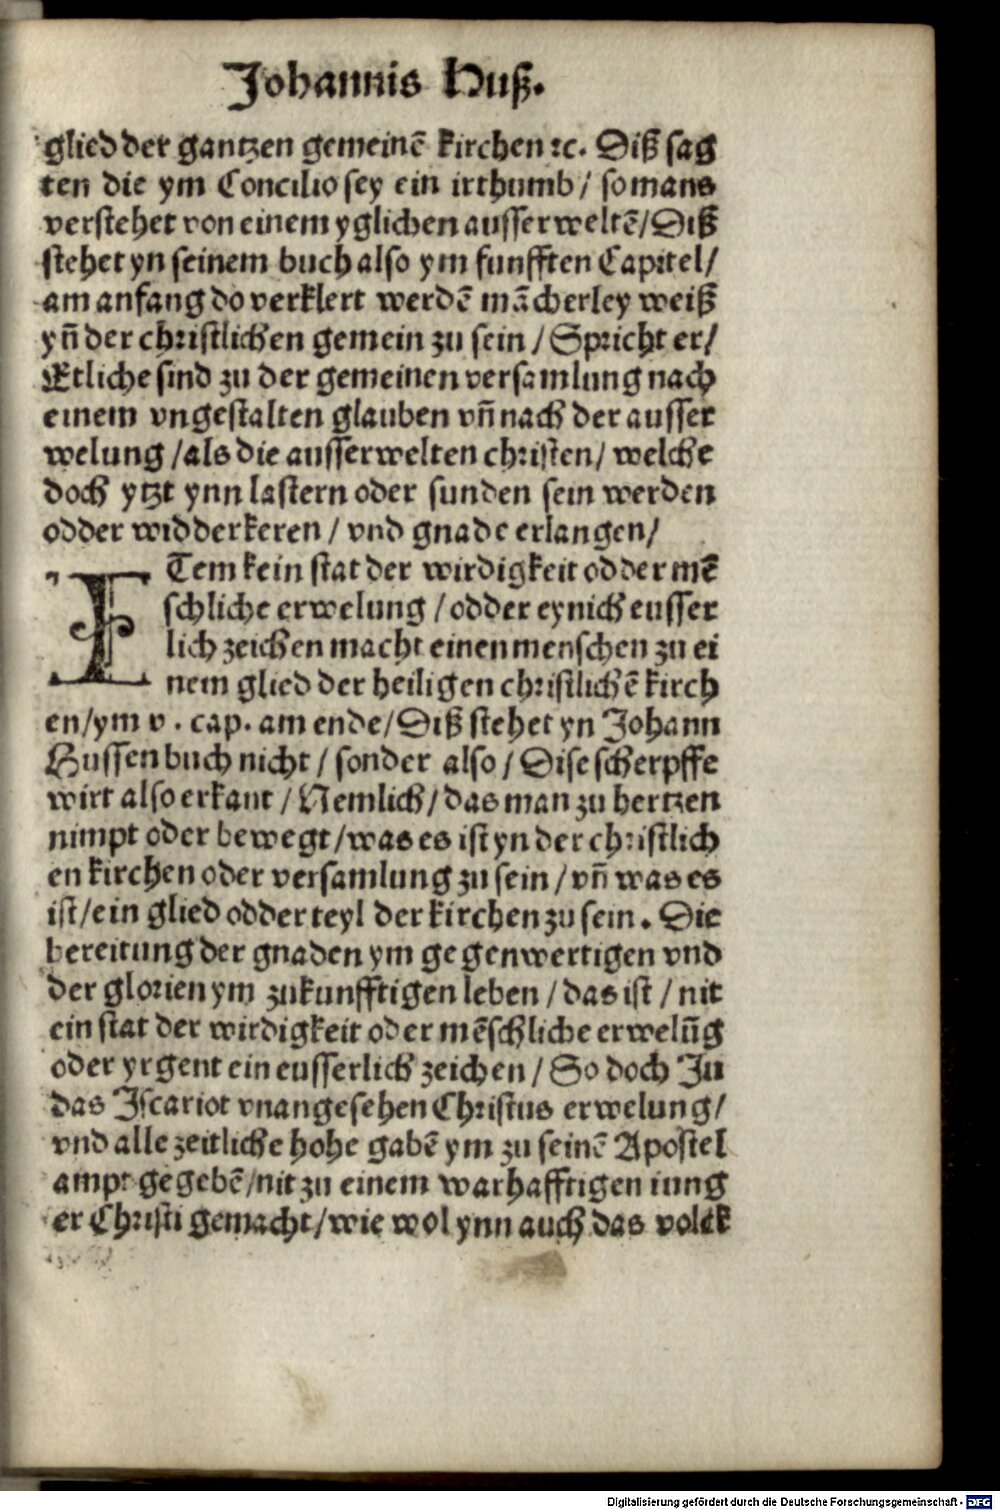 Johannis Huß.
glied der gantzen gemeinē kirchen ꝛc. Diß sag
ten die ym Concilio sey ein irthumb / so mans
verstehet von einem yglichen ausserweltē / Diß
stehet yn seinem buch also ym funfften Capitel /
am anfang do verklert werdē mācherley weiß
yn̄ der christlichen gemein zu sein / Spricht er /
Etliche sind zu der gemeinen versamlung nach
einem vngestalten glauben vn̄ nach der ausser
welung / als die ausserwelten christen / welche
doch ytzt ynn lastern oder sunden sein werden
odder widderkeren / vnd gnade erlangen /
ITem kein stat der wirdigkeit odder mē
schliche erwelung / odder eynich eusser
lich zeichen macht einen menschen zu ei
nem glied der heiligen christlichē kirch
en / ym v. cap. am ende / Diß stehet yn Johann
Hussen buch nicht / sonder also / Dise scherpffe
wirt also erkant / Nemlich / das man zu hertzen
nimpt oder bewegt / was es ist yn der christlich
en kirchen oder versamlung zu sein / vn̄ was es
ist / ein glied odder teyl der kirchen zu sein. Die
bereitung der gnaden ym gegenwertigen vnd
der glorien ym zukunfftigen leben / das ist / nit
ein stat der wirdigkeit oder mēschliche erwelūg
oder yrgent ein eusserlich zeichen / So doch Ju
das Iscariot vnangesehen Christus erwelung /
vnd alle zeitliche hohe gabē ym zu seinē Apostel
ampt gegebē / nit zu einem warhafftigen iung
er Christi gemacht / wie wol ynn auch das volck
Digitalisierung gefördert durch die Deutsche Forschungsgemeinschaft - DFG